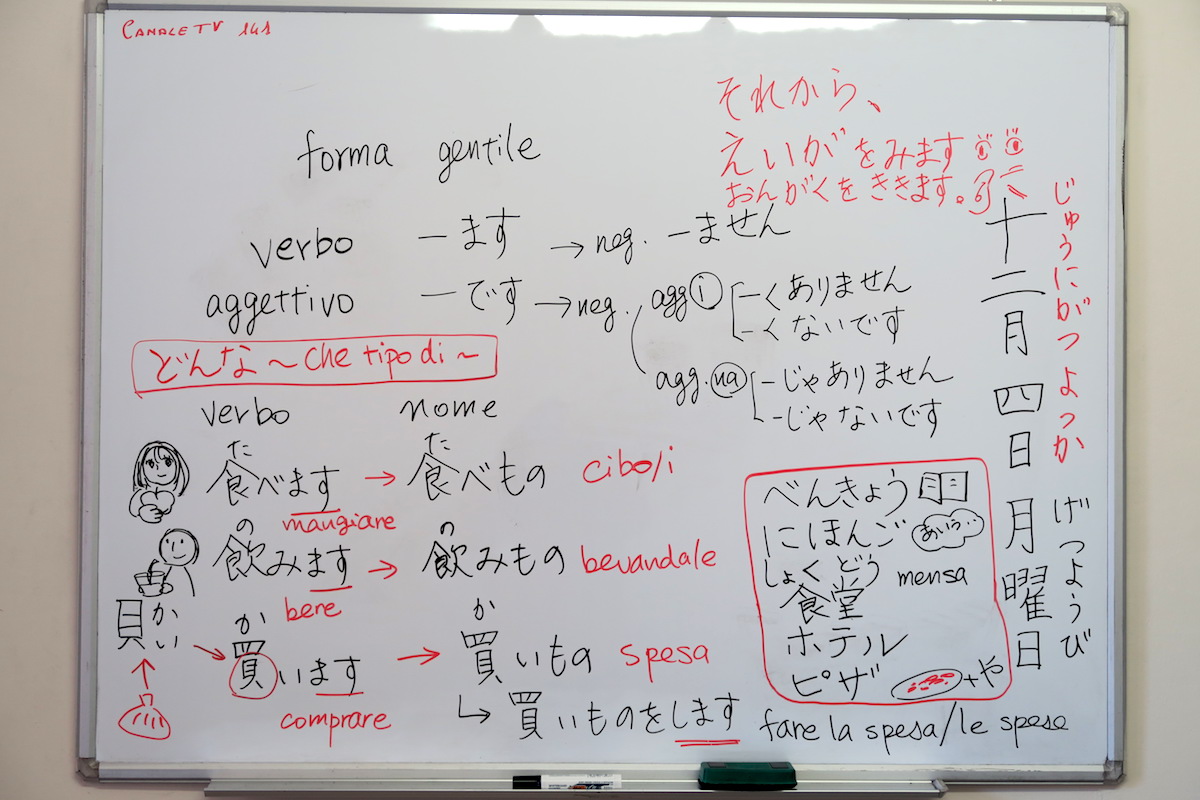 CANALE TV 141
forma gentile
verbo ーます → neg. ーません
aggettivo ーです → neg. agg i ーくありません
ーくないです
agg. na ーじゃありません
ーじゃないです
どんな～che tipo di～
verbo nome
た た
食べます → 食べもの cibo/i
mangiare
の の
飲みます → 飲みもの bevanda/e
bere
かい
貝
か か
買います → 買いもの spesa
comprare
↳ 買いものをします fare la spesa/le spese
それから、
えいがをみます
おんがくをききます。
十二月四日月曜日
じゅうにがつ よっか
げつようび
べんきょう
にほんご あいう‥
しょくどう
食堂 mensa
ホテル
ピザ +や